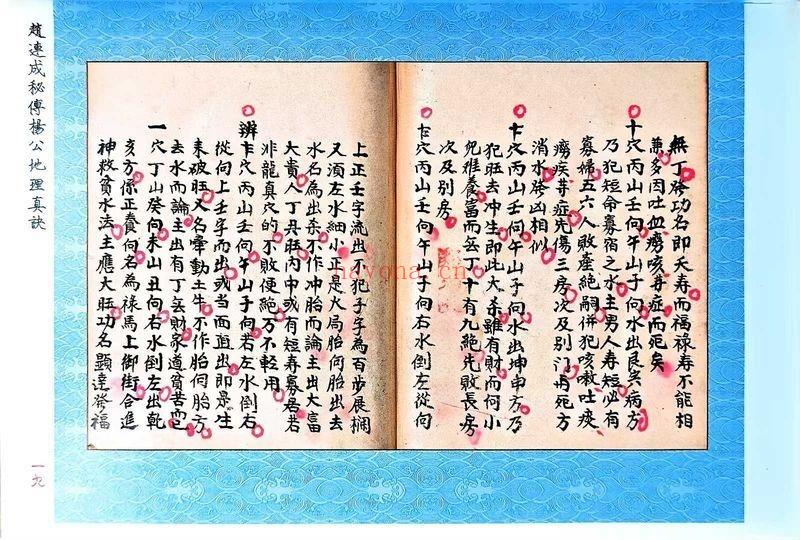 趙連成秘傳楊公地理真訣
無丁發功名即夭寿而福禄寿不能相
兼多因吐血癆咳等症而死矣
十穴丙山壬向午山子向水出艮為病方
乃犯短命寡宿之水主男人寿短必有
寡婦五六人敗產絶嗣併犯咳嗽吐痰
癆疾等症先傷三房次及别門再死方
消水發凶相似
十穴丙山壬向午山子向水出坤申方乃
犯旺去冲生即此大杀雖有財而何小
兒难養富而無丁十有九絶先敗長房
次及别房
十穴丙山壬向午山子向右水倒左從向
上正壬字流出不犯子字為百步展欄
又須左水細小正是火局胎向胎出去
水名為出杀不作冲胎而論主出大富
大貴人丁具旺内中或有短寿寡居若
非龍真穴的不敗便絶万不軽用
辨十穴丙山壬向午山子向若左水倒右
從向上壬字而出或当面直出即是生
来破旺又名牽動土牛不作胎向胎方
去水而論主出有丁無財家道貧苦而已
一穴丁山癸向未山丑向右水倒左出乾
亥方係正養向名為禄馬上御街合進
神救貧水法主應大旺功名顕達發福
一九